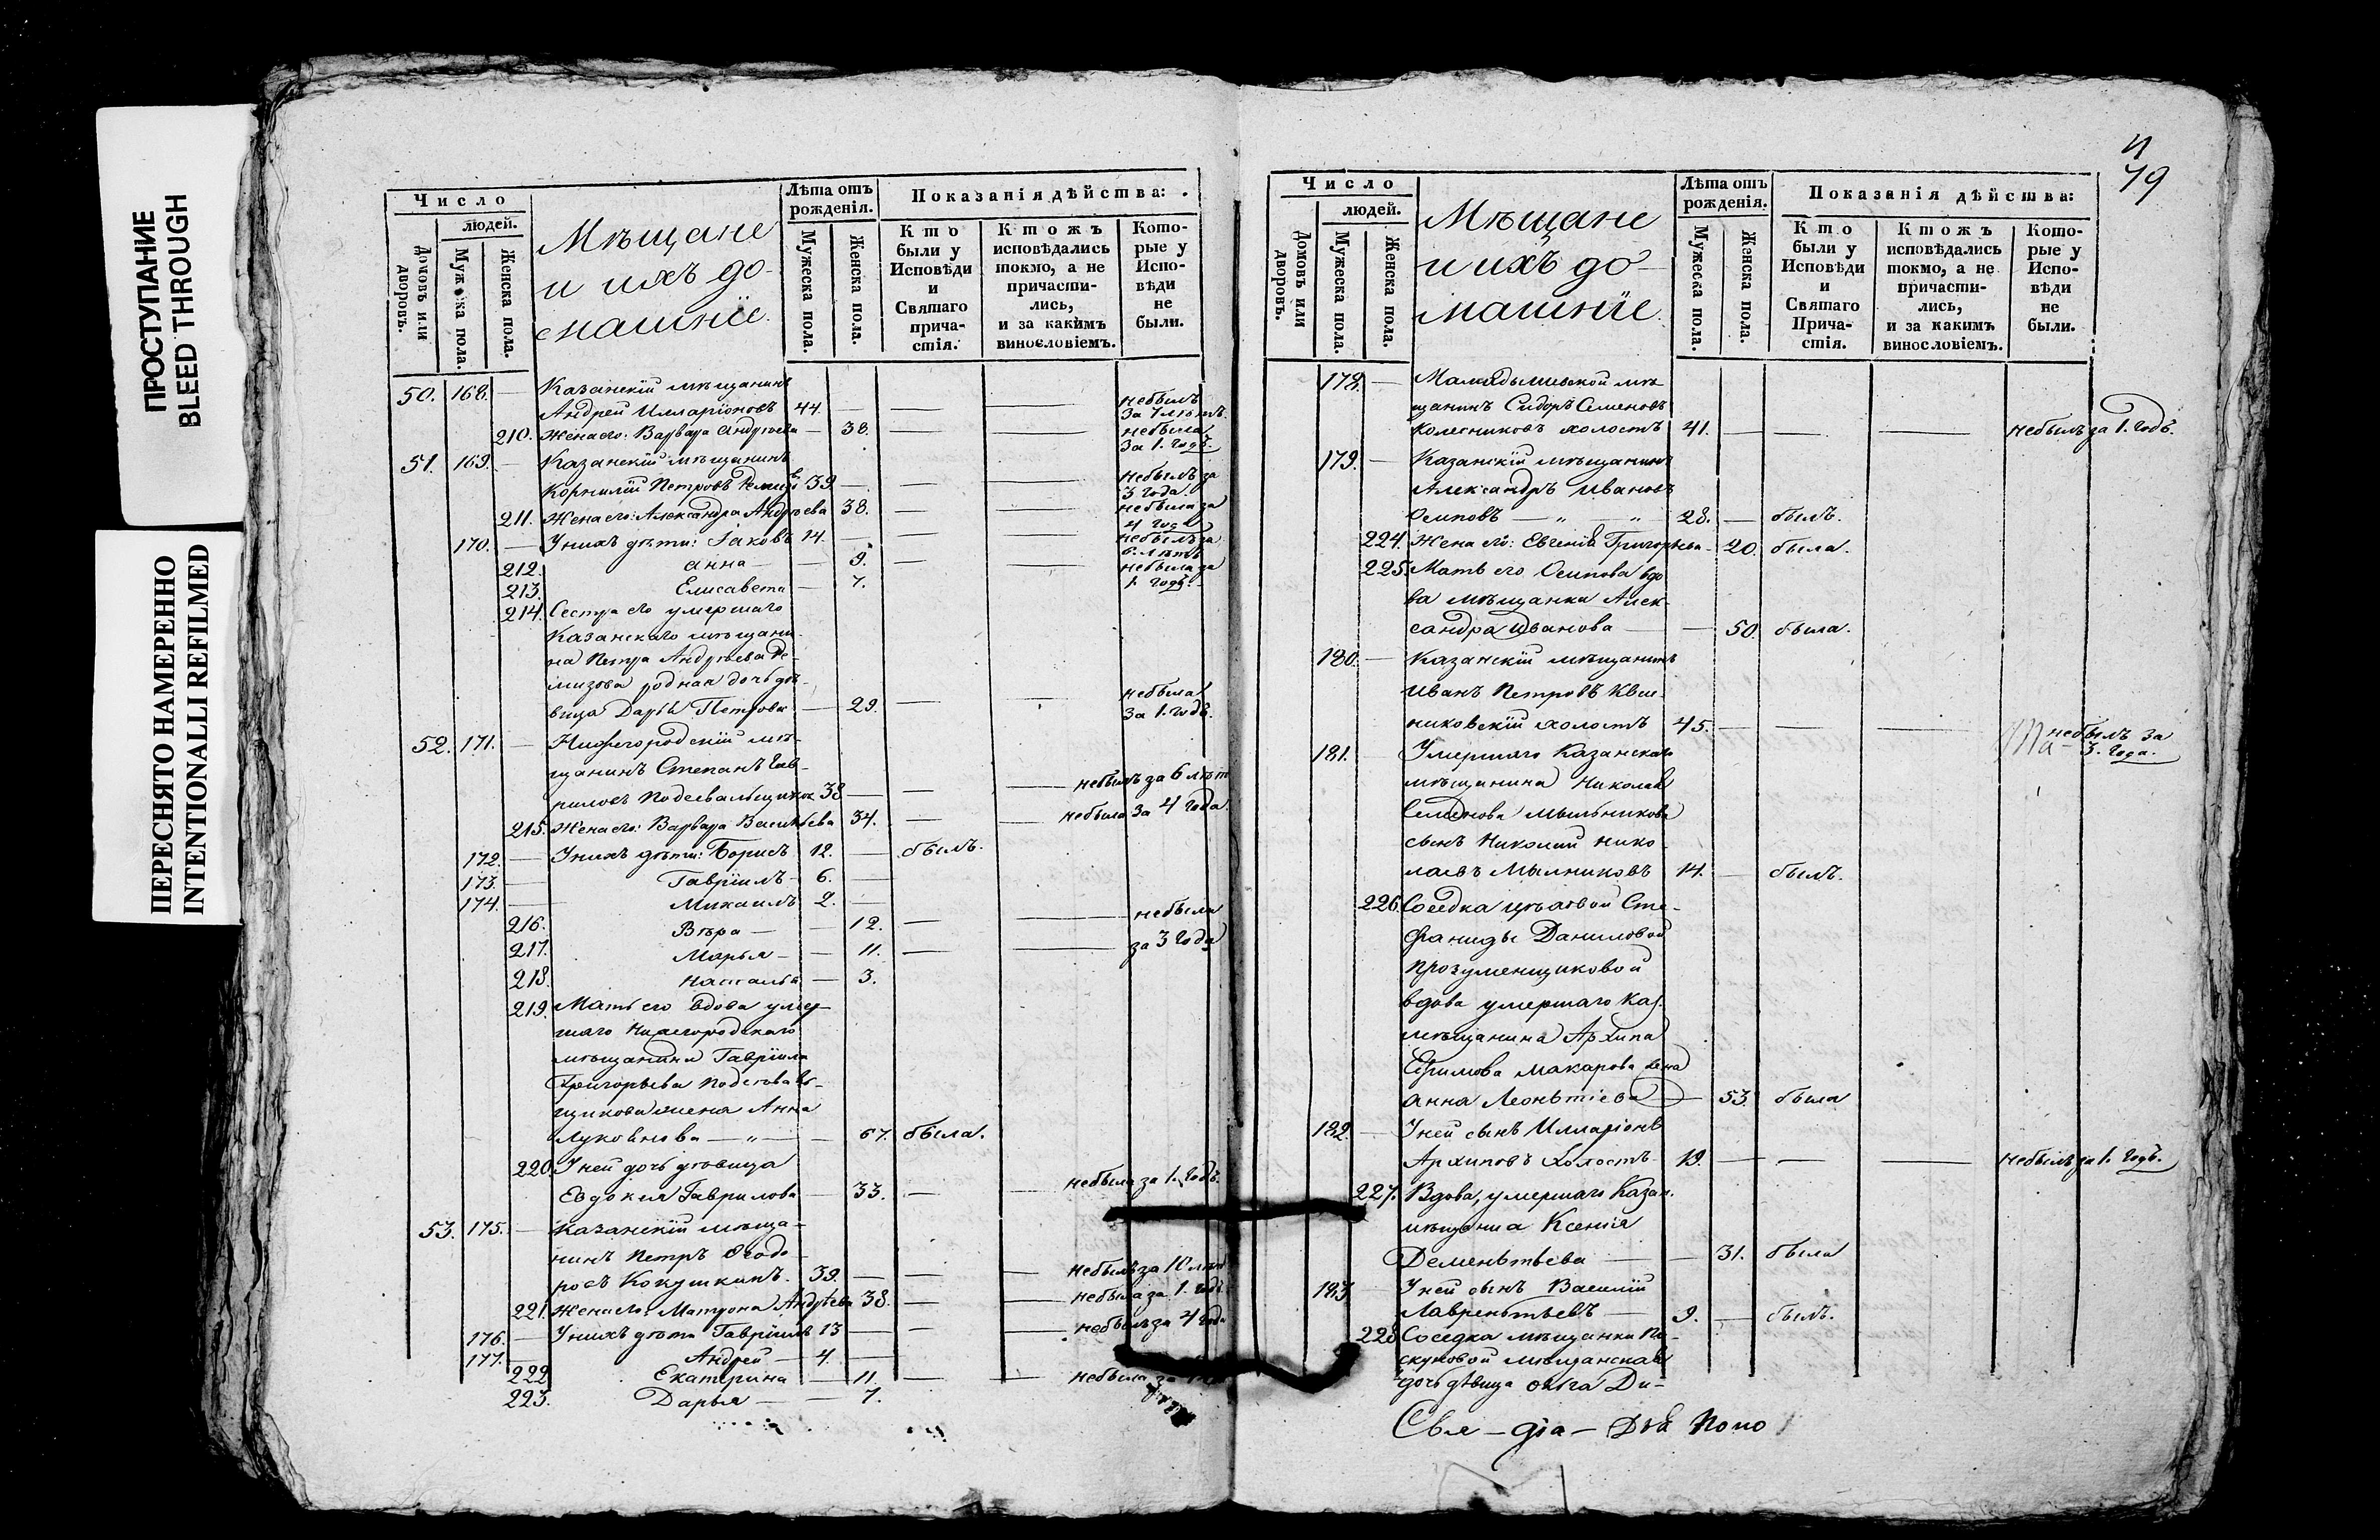 ПРОСТУПАНИЕ
BLEED THROUGH
ПЕРЕСНЯТО НАМЕРЕННО
INTENTIONALLI REFILMED
Число
людей.
Домовъ или дворовъ.
Мужеска пола.
Женска пола.
Мѣщане
и ихъ до-
машніе.
Лѣта отъ
рожденія.
Мужеска пола.
Женска пола.
Показанія дѣйства:
Кто
были у
Исповѣди
и
Святаго
прича-
стія.
Ктожъ
исповѣдались
токмо, а не
причасти-
лись,
и за какимъ
винословіемъ.
Кото-
рые у
Испо-
вѣди
не
были.
50. 168. — Казанскій мѣщанинъ
Андрей Илларіоновъ 44. — — — небылъ за 7 лѣтъ.
210. Жена его: Варвара Андрѣева — 38. — — небыла за 1. годъ.
51. 169. — Казанскій мѣщанинъ
Корнилій Петровъ Ремизовъ 39 — — — небылъ за 3 года.
211. Жена его: Александра Андрѣева 38. — — небыла за 4 года
170. — У нихъ дѣти: Іаковъ 14. — — — небылъ за 6. лѣтъ
212. Анна — — 9. — — небыла за 1. годъ.
213. Елисавета — 7.
214. Сестра его умершаго
Казанскаго мѣщани-
на Петра Андрѣева Ре-
мизова родная дочь дѣ-
вица Дарья Петрова — 29. — — небыла за 1. годъ.
52. 171. — Нижегородскій мѣ-
щанинъ Степанъ Гав-
риловъ 38 — — — небылъ за 6 лѣт
215. Жена его: Варвара Васильева 34. — — небыла за 4 года.
172. — У нихъ дѣти: Борисъ 12. — былъ.
173. — Гавріилъ — 6. —
174. — Михаилъ 2. —
216. Вѣра — — 12. — — небыла
217. Марья — — 11. — — за 3 года
218. Наталья — 3.
219. Мать его вдова умер-
шаго Нижегородскаго
мѣщанина Гавріила
Григорьева
щикова жена Анна
Лукоянова — „ — — 67. была.
220. У ней дочь дѣвица
Евдокия Гаврилова — 33. — — небыла за 1. годъ.
53. 175. — Казанскій мѣща-
нинъ Петръ Ѳеодо-
ровъ Кокушкинъ. 39. — — — небылъ за 10 лѣт
221. Жена его: Матрона Андрѣева 38. — — небыла за 1. годъ
176. — У нихъ дѣти Гавріилъ 13 — — — небылъ за 4 года
177. — Андрей — 4. —
222. Екатерина — 11. — — небыла за
223. Дарья — — 7.
79
Число
людей.
Домовъ или дворовъ.
Мужеска пола.
Женска пола.
Мѣщане
и ихъ до-
машніе.
Лѣта отъ
рожденія.
Мужеска пола.
Женска пола.
Показанія дѣйства:
Кто
были у
Исповѣди
и
Святаго
Прича-
стія.
Ктожъ
исповѣдались
токмо, а не
причасти-
лись,
и за какимъ
винословіемъ.
Кото-
рые у
Испо-
вѣди
не
были.
178. — Мамадышской мѣ-
щанинъ Сидоръ Семеновъ
Колесниковъ холостъ 41. — — — небылъ за 1. годъ.
179. — Казанскій мѣщанинъ
Александръ Ивановъ
Осиповъ — „ — „ — 28. — былъ.
224. Жена его: Евгенія Григорьева — 20. была.
225. Мать его Осипова вдо-
ва мѣщанка Алек-
сандра Иванова — — 50. была.
180. — Казанскій мѣщанинъ
Иванъ Петровъ Кват-
никовскій холостъ 45. — — — небылъ за 3. года.
181. — Умершаго Казанскаго
мѣщанина Николая
Семенова Мыльникова
сынъ Николай Нико-
лаевъ Мылниковъ 14. — былъ.
226. Соседка Сте-
фаниды Даниловой
Прозуменщиковой
вдова умершаго Каз.
мѣщанина Архипа
Ефимова Макарова жена
Анна Леонтіева — 53. была
182. — У ней сынъ Илларіонъ
Архиповъ холостъ 19. — — — небылъ за 1. годъ.
227. Вдова, умершаго Казан.
мѣщанина Ксенія
Дементьева — — 31. была
183. — У ней сынъ Василій
Лаврентьевъ — 9. — былъ.
228. Соседка мѣщанки Пи-
скуновой мѣщанская
дочь дѣвица Ольга Ди-
Свя — діа — Попо